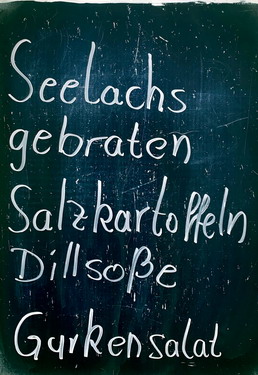 Seelachs
gebraten
Salzkartoffeln
Dillsoße
Gurkensalat